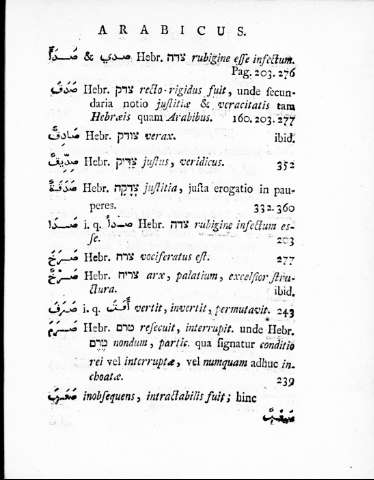 ARABICUS.
& صدي Hebr. צדה rubigine esse infectum.
Pag. 203. 276
صَدَقَ Hebr. צדק recto-rigidus fuit, unde secun-
daria notio justitiæ & veracitatis tam
Hebræis quam Arabibus. 160. 203. 277
صَادِقٌ Hebr. צודק verax. ibid.
صِدِّيقٌ Hebr. צַדִּיק justus, veridicus. 352
صَدَقَةٌ Hebr. צְדָקָה justitia, justa erogatio in pau-
peres. 332. 360
صَدَا i. q. صدأ Hebr. צדה rubigine infectum es-
se. 203
صَرَخَ Hebr. צרח vociferatus est. 277
صَرْحٌ Hebr. צריח arx, palatium, excelsior stru-
ctura. ibid.
صَرَفَ i. q. vertit, invertit, permutavit. 243
صَرَمَ Hebr. טרם resecuit, interrupit. unde Hebr.
טֶרֶם nondum, partic. qua signatur conditio
rei vel interruptæ, vel numquam adhuc in-
choatæ. 239
inobsequens, intractabilis fuit; hinc